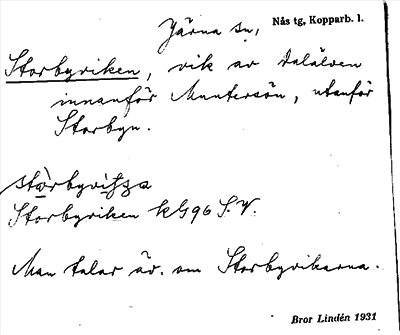 Järna sn, Nås tg, Kopparb. l.
Storbyviken, vik av Dalälven
innanför Muntersön, utanför
Storbyn.
Storbyviken kb 96 S.V.
Man talar äv. om Storbyvikarna.
Bror Lindén 1931